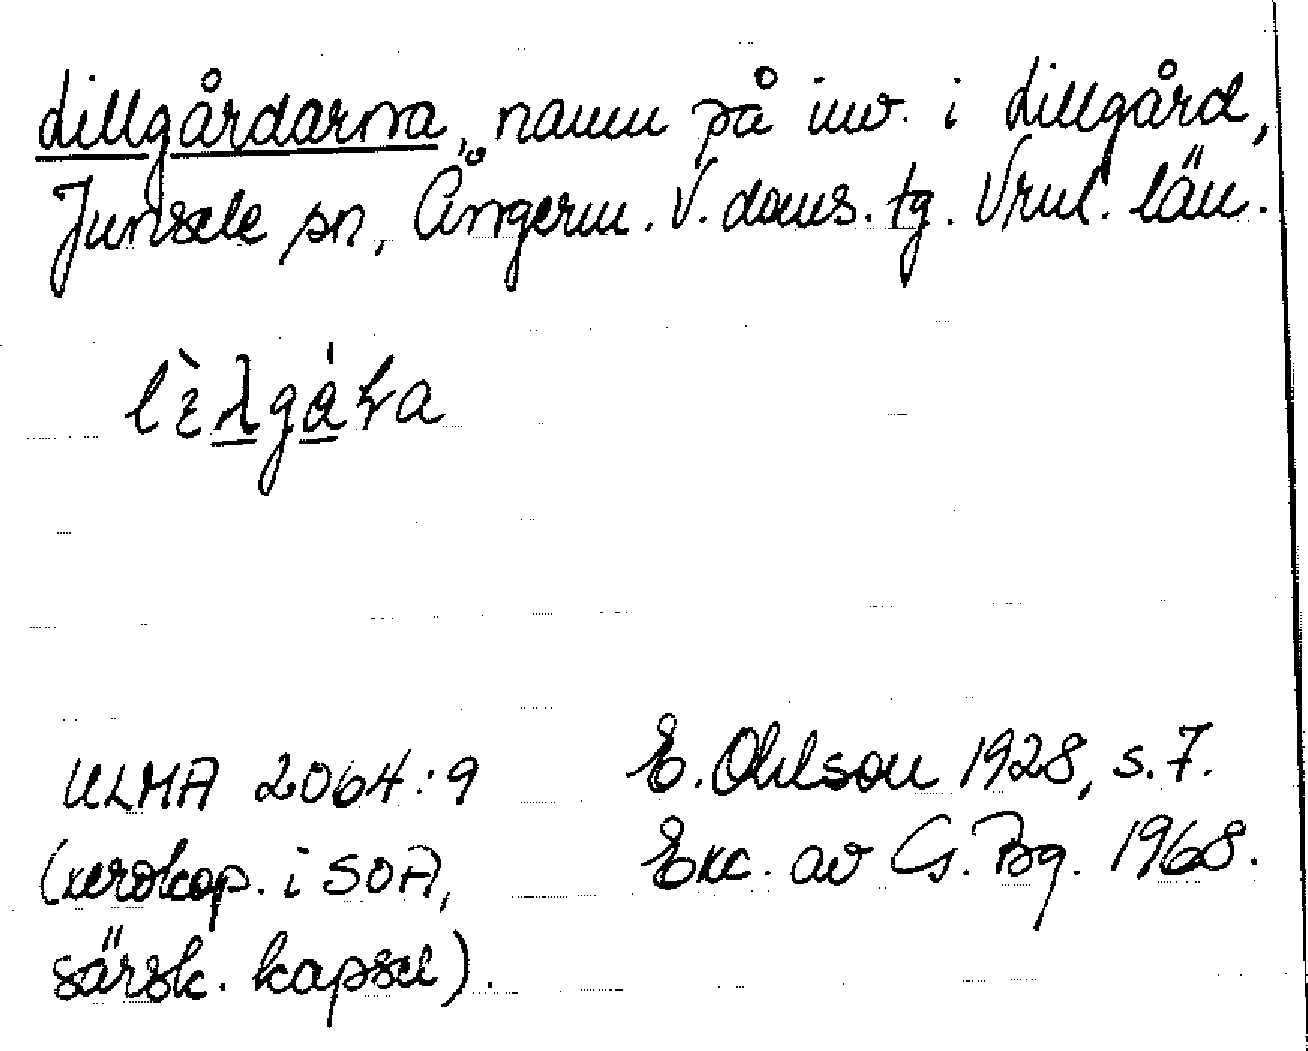 Lillgårdarna, namn på inv. i Lillgård,
Junsele sn, Ångerm. V. doms. tg. Vrnl. län.
lɛ̀λgáṙa
ULMA 2064:9
(xerokop. i SOA,
särsk. kapsel).
E. Ohlson 1928, s. 7.
Exc. av G. Bg. 1968.